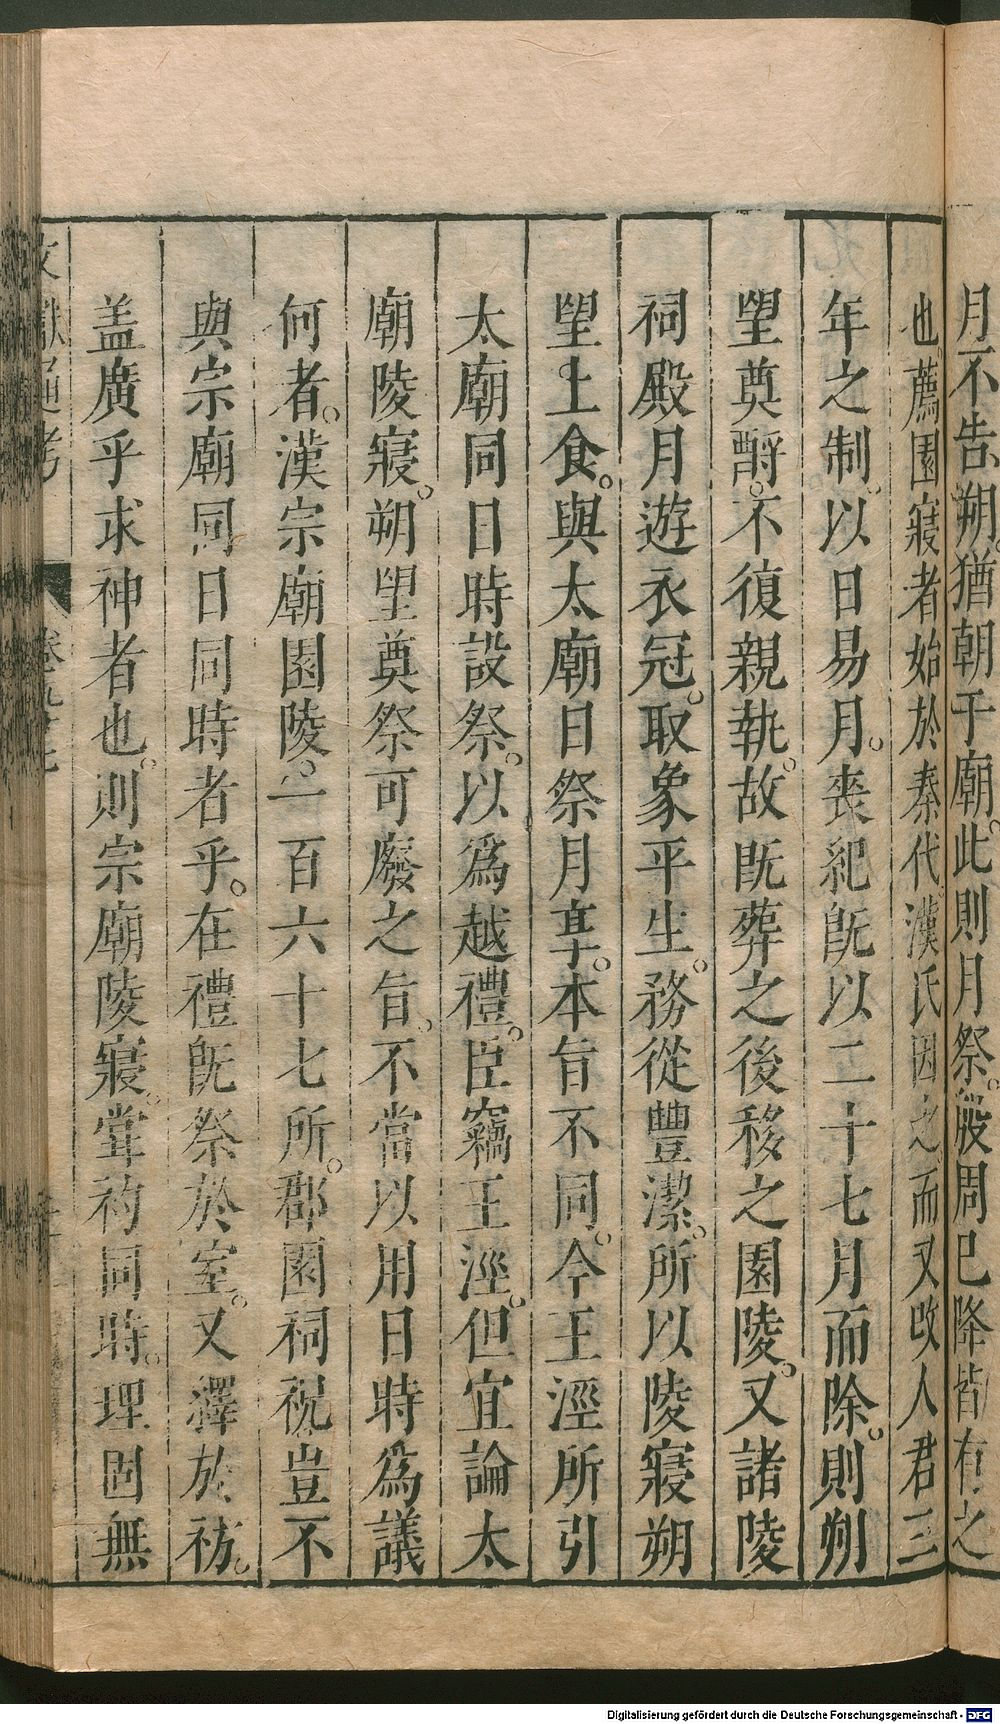 月不告朔。猶朝于廟。此則月祭。殷周已降皆有之
也。薦園寢者始於秦代。漢氏因之。而又改人君三
年之制。以日易月。喪紀既以二十七月而除。則朔
望奠酹。不復親執。故既葬之後移之園陵。又諸陵
祠殿月遊衣冠。取象平生。務從豐潔。所以陵寢朔
望上食。與太廟日祭月享。本旨不同。今王涇所引
太廟同日時設祭。以為越禮。臣竊王涇。但宜論太
廟陵寢。朔望奠祭可廢之旨。不當以用日時為議
何者。漢宗廟園陵。一百六十七所。郡國祠祝豈不
與宗廟同日同時者乎。在禮既祭於室。又繹於祊。
盖廣乎求神者也。則宗廟陵寢。甞礿同時。理固無
文獻通考 卷九十七
Digitalisierung gefördert durch die Deutsche Forschungsgemeinschaft - DFG